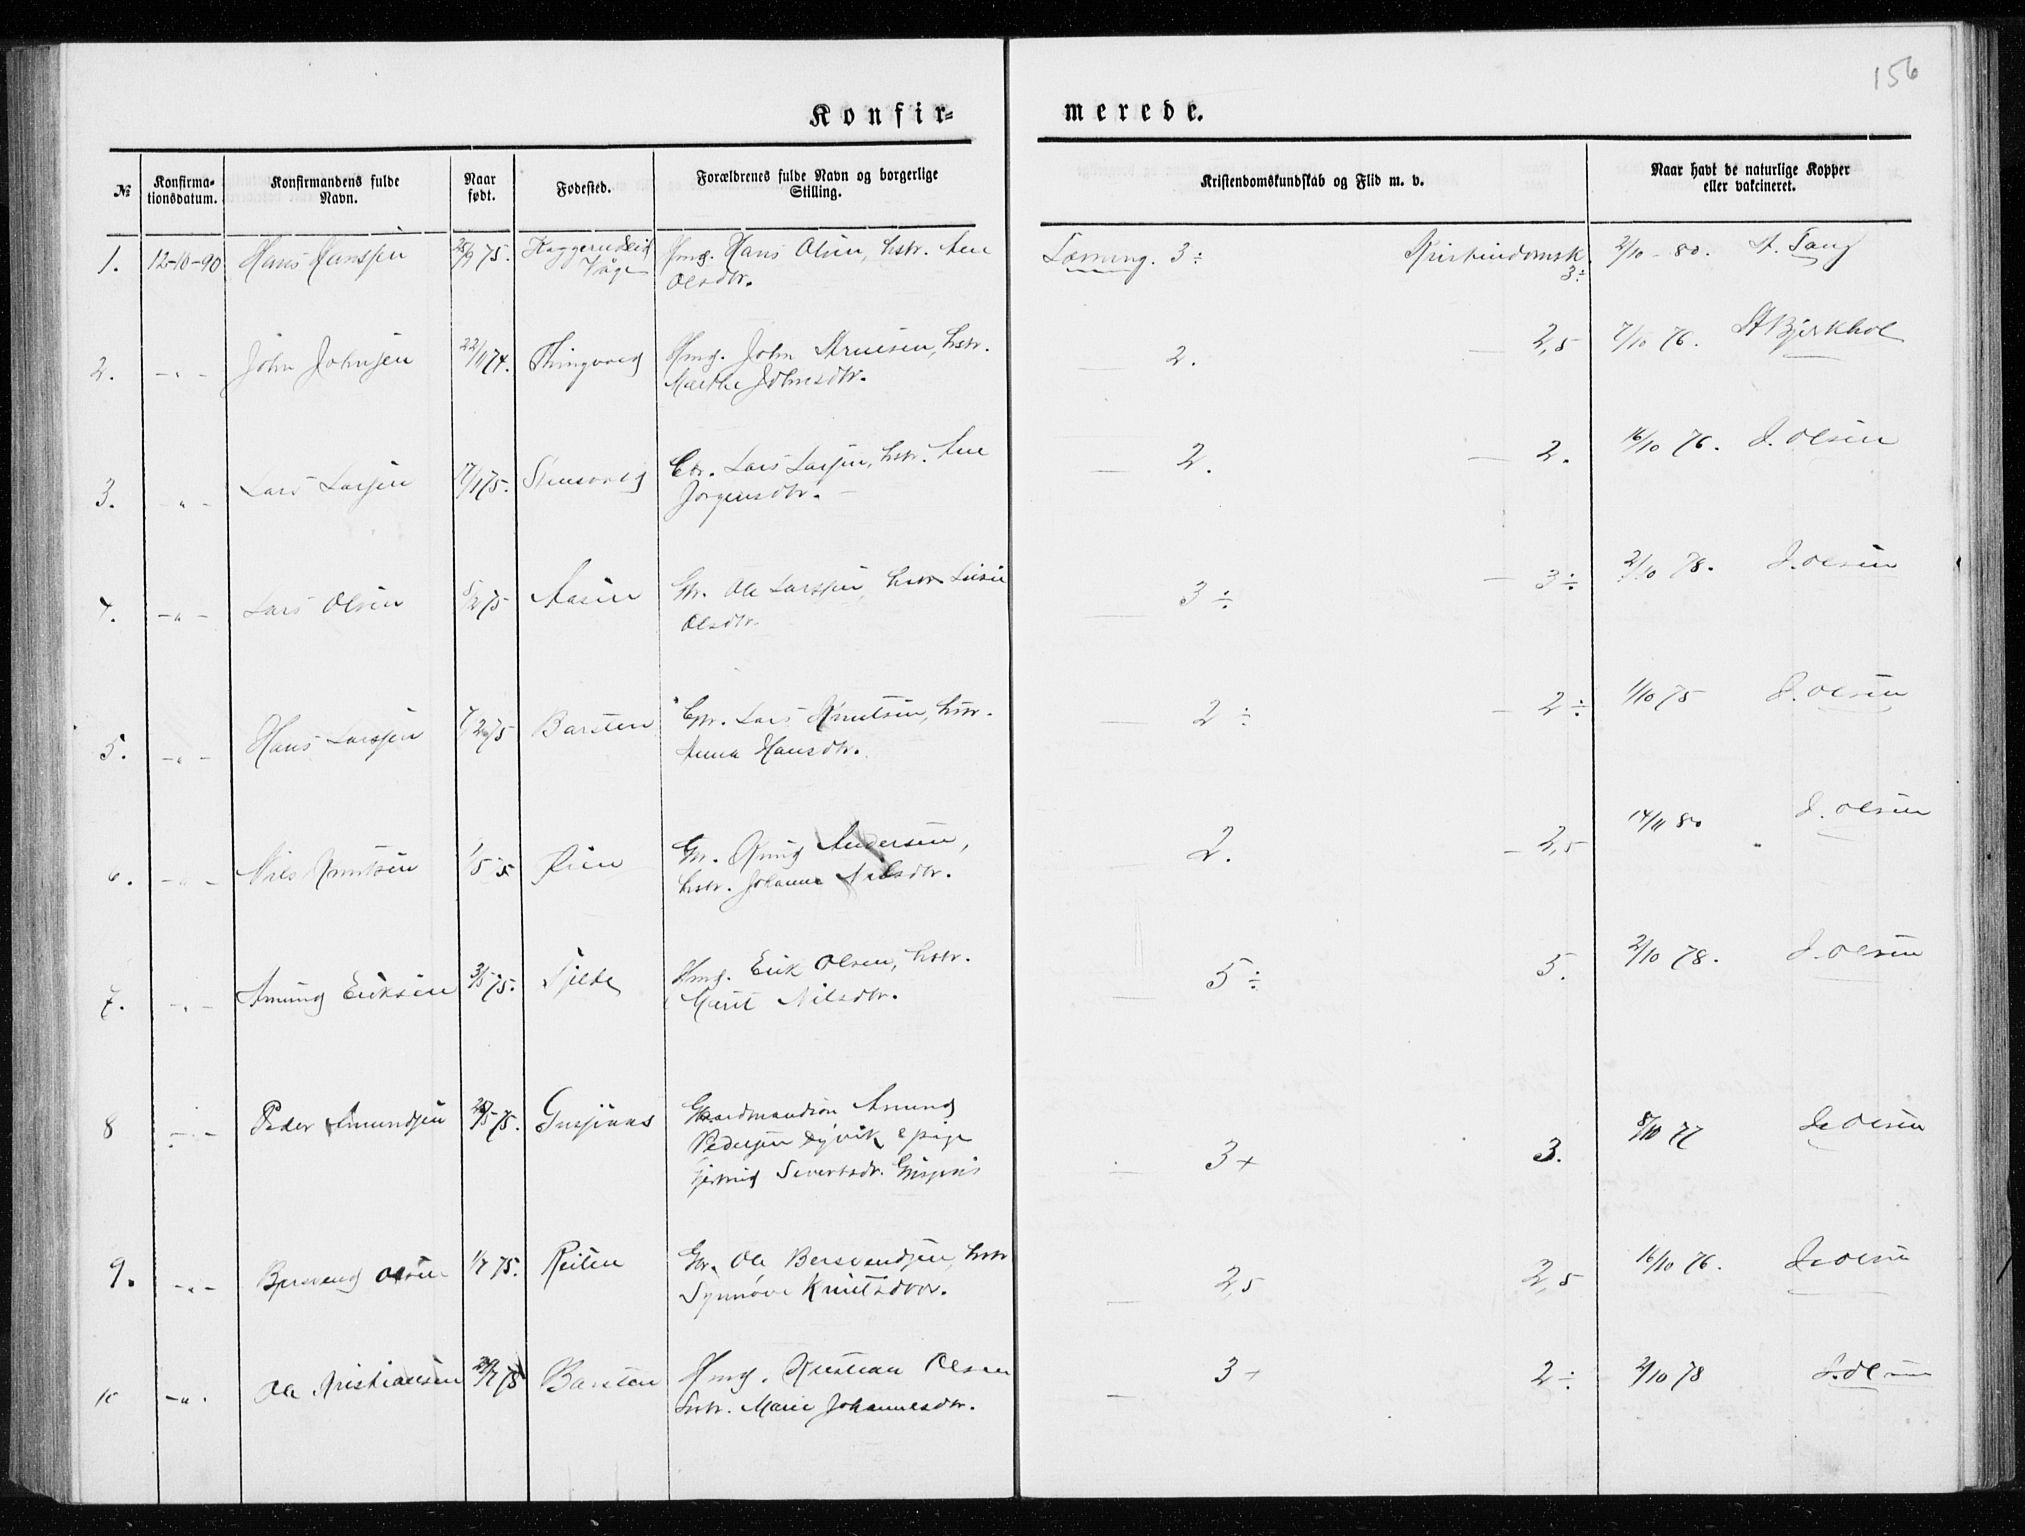 156
Konfir-
merede.
No
Konfirma-
tionsdatum.
Konfirmandens fulde
Navn.
Naar
født.
Fødested.
Forældrenes fulde Navn og borgerlige
Stilling.
Kristendomskundskab og Flid m. v.
Naar havt de naturlige Kopper
eller vakcineret.
1. 12-10-90 Hans Hanssen 75. Hmd. Hans Olsen, hstr. Ane
Olsdtr.
Læsning. 3÷ Kristendomsk.
3÷
2/10 - 80. Tang
2. - " - John Johnsen 22/1 74. Thingvold Hmd. John Arnesen, hstr.
Marthe Johnsdtr.
— 2. — 2,5 7/10 76. Bjerkhol
3. - " - Lars Larsen 17/1 75. Stensvold Gbr. Lars Larsen, hstr. Ane
Jørgensdtr.
— 2. — 2. 16/10 76. J. Olsen
4. - " - Lars Olsen 5/2 75 Aasen Gbr. Ole Larssen, hstr.
Olsdtr.
— 3÷ — 3÷ 2/10 78. J. Olsen
5. - " - Hans Larssen 75 Barsten Gbr. Lars Knutsen, hstr.
Anna Hansdtr.
— 2÷ — 2÷ 1/10 75 J. Olsen
6. - " - Nils Knutsen Øien Gbr. Knud Andersen,
hstr. Johanne Nilsdtr.
— 2. — 2,5 14/11 80 J. Olsen
7. - " - Amund Eriksen 3/5 75. Tjelde Hmd. Erik Olsen, hstr.
Marit Nilsdtr.
5÷ 5. 2/10 78. J. Olsen
8 - " - Peder Amundsen 75. Gaardmandsøn Amund
Pedersen Dyvik & pige
Gjertrud Sivertsdtr.
— 3+ 3. 8/10 77 J. Olsen
9. - " - Bersvend Olsen 1/7 75. Reiten Gbr. Ole Bersvendsen, hstr
Synnøve Knutsdtr.
— 2,5 2,5 16/10 76. J. Olsen
10 - " - Ole Kristiansen 75 Barsten Hmd. Kristian Olsen
hstr. Marie Johannesdtr.
— 3+ 2÷ 2/10 78 J. Olsen